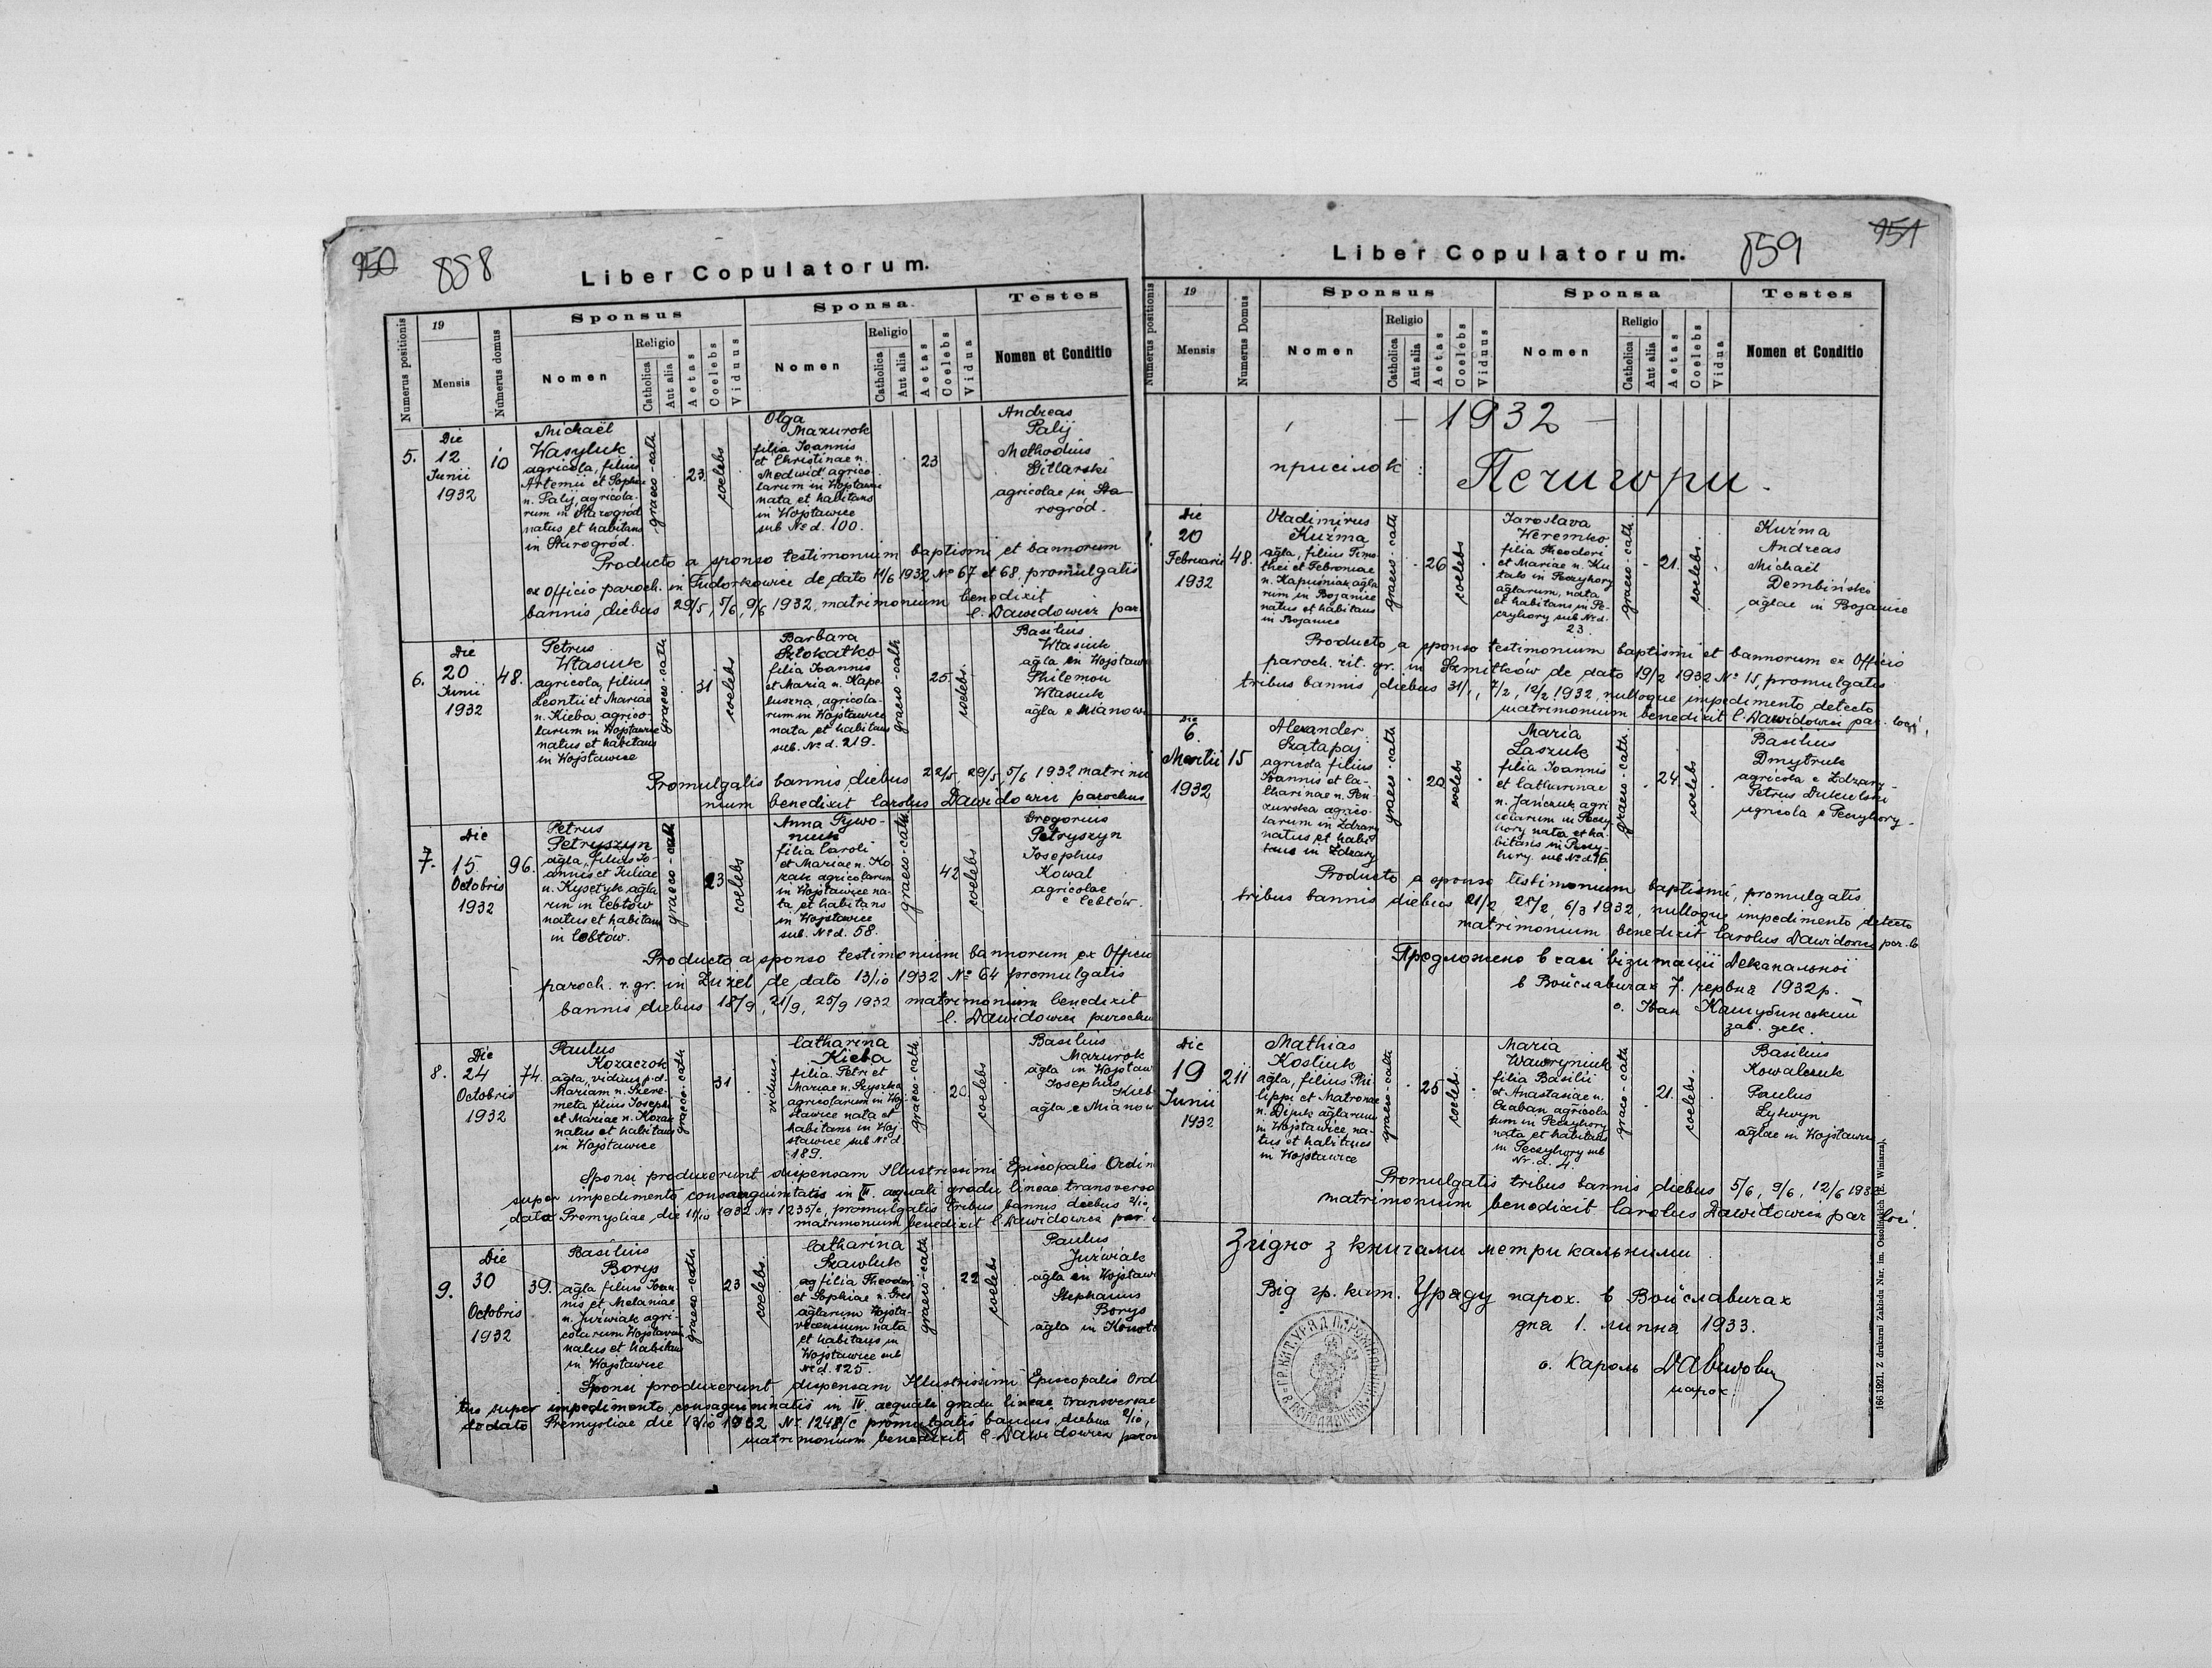 950
858
Liber Copulatorum.
Numerus positionis
19
Mensis
Numerus domus
Sponsus
Nomen
Religio
Catholica
Aut alia
Aetas
Coelebs
Viduus
Sponsa
Nomen
Religio
Catholica
Aut alia
Aetas
Coelebs
Vidua
Testes
Nomen et Conditio
5.
Die
12
Junii
1932
10
Michaël
Wasyluk
agricola, filius
Artemii et Sophiae
n. Palij, agricola-
rum in Starogród
natus et habitans
in Starogród.
graeco-cath
23
coelebs
Olga
Mazurok
filia Joannis
et Christinae n.
Medwid' agrico-
larum in Wojsławice
nata et habitans
in Wojsławice
sub No d. 100.
23
Andreas
Palij
Methodius
agricolae in Sta-
rogród.
Producto a sponso testimonium baptismi et bannorum
ex officio paroch. in Tudorkowice de dato 11/6 1932 No 67 et 68, promulgatis
bannis, diebus 29/5, 5/6, 9/6 1932, matrimonium benedixit
C. Dawidowicz par
6.
Die
20
Junii
1932
48.
Petrus
Własiuk
agricola, filius
Leontii et Mariae
n. Kieba, agrico-
larum in Wojsławice
natus et habitans
in Wojsławice
graeco-cath
31
coelebs
Barbara
Szłokatko
filia Joannis
et Maria n. Kape-
luszna, agricola-
rum in Wojsławice
nata et habitans
sub. No d. 219.
graeco-cath
25.
coelebs.
Basilius
Własiuk
agla in Wojsław
Philemon
Własiuk
agla e Mianow
Promulgatis bannis, diebus 22/5, 29/5, 5/6 1932 matrimo
nium benedixit Carolus Dawidowicz parochus
7.
Die
15.
Octobris
1932
96.
Petrus
Petryszyn
agla, filius Jo-
annis et Juliae
n. Kysetyk, agla
rum in Cebłów
natus et habitans
in Cebłów.
graeco-cath
23
coelebs
Anna Tywo-
niuk
filia Caroli
et Mariae n. Ko-
zak agricolarum
in Wojsławice na-
ta et habitans
in Wojsławice
sub. No d. 58.
graeco-cath.
42
coelebs
Gregorius
Petryszyn
Josephus
Kowal
agricolae
e Cebłów.
Producto a sponso testimonium bannorum ex Officio
paroch. r. gr. in Żużel de dato 13/10 1932 No 64 promulgatis
bannis diebus 18/9, 21/9, 25/9 1932 matrimonium benedixit
C. Dawidowicz parochus
8.
Die
24
Octobris
1932
74.
Paulus
Kozaczok
agla, viduus p.d.
Mariam n. Szere-
meta filius Josephi
et Mariae n. Kozak
natus et habitans
in Wojsławice
graeco-cath
31
viduus
Catharina
Kieba
filia Petri et
Mariae n. Szyszka
agricolarum in Woj-
sławice nata et
habitans in Woj-
sławice sub No d
189.
graeco-cath.
20
coelebs
Basilius
Mazurok
agla in Wojsław
Josephus
Kieb
agla e Mianow
Sponsi produxerunt dispensam Illustrissimi Episcopalis Ordin
super impedimento consanguinitatis in IV. aequali gradu lineae transversa
data Premysliae die 11/10 1932 No 1235/c, promulgatis tribus bannis diebus 2/10,
matrimonium benedixit C. Dawidowicz par.
9.
Die
30
Octobris
1932
39.
Basilius
Borys
agla filius Joan-
nis et Melaniae
n. Juźwiak agri-
colarum Wojsławice
natus et habitans
in Wojsławice
graeco-cath
23
coelebs.
Catharina
Szawluk
ag filia Theodori
et Sophiae n. Gres
aglarum Wojsła-
vicensium nata
et habitans in
Wojsławice sub
No d. 125.
graeco-cath
22
coelebs
Paulus
Juźwiak
agla in Wojsław
Stephanus
Borys
agla in Konoto
Sponsi produxerunt dispensam Illustrissimi Episcopalis Ord
tus super impedimento consanguinitatis in IV. aequali gradu lineae transversae
de dato Premysliae die 13/10 1932 Nr. 1248/c promulgatis bannis, diebus 2/10,
matrimonium benedixit C. Dawidowicz paroc
951
859
Liber Copulatorum.
Numerus positionis
19
Mensis
Numerus Domus
Sponsus
Nomen
Religio
Catholica
Aut alia
Aetas
Coelebs
Viduus
Sponsa
Nomen
Religio
Catholica
Aut alia
Aetas
Coelebs
Vidua
Testes
Nomen et Conditio
- 1932 -
присілок :
Печигори.
1.
Die
20
Februarii
1932
48.
Vladimirus
Kuźma
agla, filius Timo-
thei et Febroniae
n. Kapuśniak, agla
rum in Bojanice
natus et habitans
in Bojanice
graeco-cath
26
coelebs
Jaroslava
Weremko
filia Theodori
et Mariae n. Ku-
tało in Peczyhory
aglarum, nata
et habitans in Pe-
czyhory sub No d.
23.
graeco-cath.
21.
coelebs.
Kuźma
Andreas
Michaël
Dembiński
aglae in Bojanice
Producto a sponso testimonium baptismi et bannorum ex Officio
paroch. rit. gr. in Szmitków de dato 19/2 1932 No 15, promulgatis
tribus bannis, diebus 31/1, 7/2, 12/2 1932, nulloque impedimento detecto
matrimonium benedixit C. Dawidowicz par. loci,
Die
6.
Martii
1932
15
Alexander
Szatapaj
agricola filius
Joannis et Ca-
tharinae n. Pen-
zurska agrico-
larum in Zdzary
natus et habi-
tans in Zdzary
graeco-cath
20
coelebs
Maria
Laszuk
filia Joannis
et Catharinae
n. Jańczuk agri
colarum in Peczy-
hory nata et ha-
bitans in Peczy-
hory sub No d. 16.
graeco-cath.
24.
coelebs
Basilius
Dmytruk
agricola e Zdzary-
Petrus Dukulski
agricola e Peczyhory.
Producto a sponso testimonium baptismi, promulgatis
tribus bannis diebus 21/2, 28/2, 6/3 1932, nulloque impedimento detecto
matrimonium benedixit Carolus Dawidowicz par. lo
Предложено в часі візитації Деканальної
в Войславичах 7. червня 1932 р.
о. Іван Кашубинський
зав. дек.
Die
19
Junii
1932
211
Mathias
Kostiuk
agla, filius Phi-
lippi et Matronae
n. Dijuk aglarum
in Wojsławice na-
tus et habitans
in Wojsławice
graeco-cath
25
coeleb.
Maria
Wawryniuk
filia Basilii
et Anastasiae n.
Czaban agricola
rum in Peczyhory
nata et habitans
in Peczyhory sub
Nr. d. 4.
graeco-cath
21.
coelebs.
Basilius
Kowalczuk
Paulus
Lytwyn
aglae in Wojsławice
Promulgatis tribus bannis diebus 5/6, 9/6, 12/6 1932
matrimonium benedixit Carolus Dawidowicz par loci.
Згідно з книгами метрикальними
Від гр. кат. Уряду парох. в Войславичах
дня 1. липня 1933.
о. Кароль Давидович
парох
166 1921. Z drukarni Zakładu Nar. im. Ossolińskich (E. Winiarza).